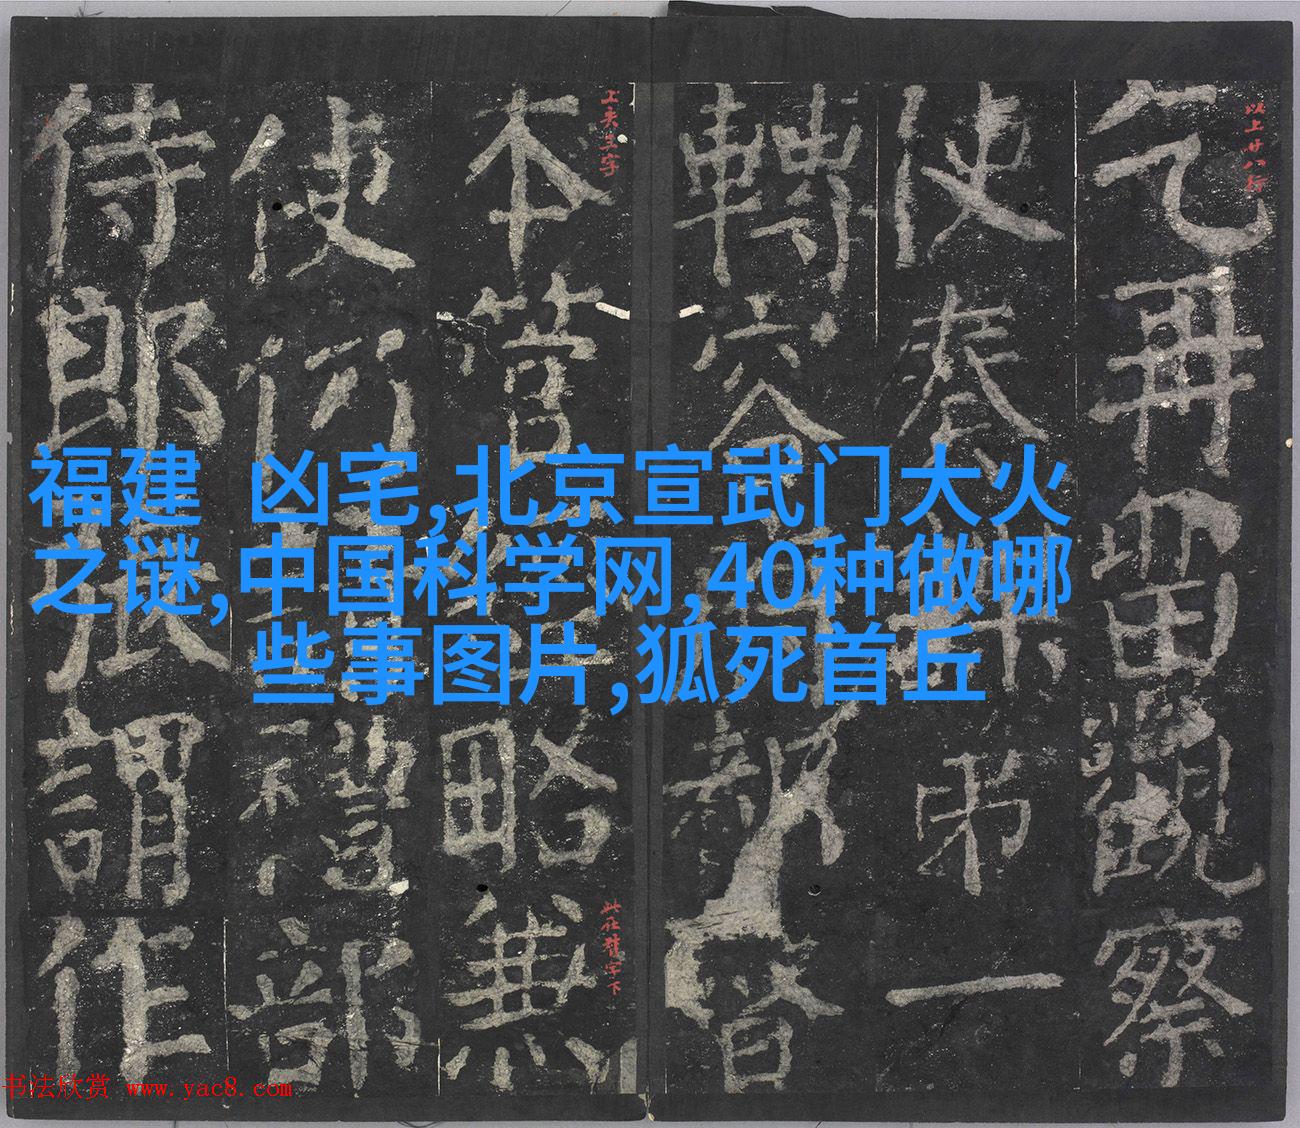 福建 凶宅,北京宣武门大火
之谜,中国科学网,40种做哪
些事图片,狐死首丘
以上廿八行
乞再留觀察
使奏 第一
轉六合 督
本管 略
此在 字下
使 禮部
侍郎張謂作
书法欣赏 www.yac8.com